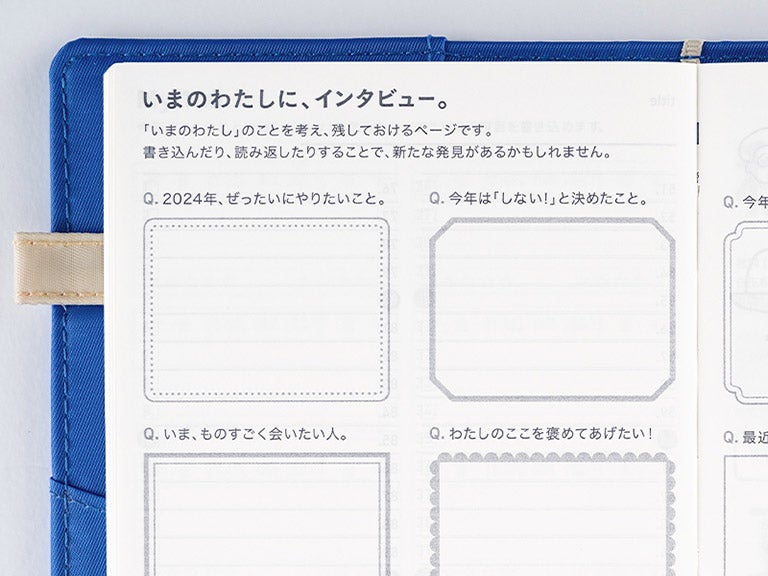 いまのわたしに、インタビュー。
「いまのわたし」のことを考え、残しておけるページです。
書き込んだり、読み返したりすることで、新たな発見があるかもしれません。
Q. 2024年、ぜったいにやりたいこと。
Q. 今年は「しない!」と決めたこと。
Q. 今年
Q. いま、ものすごく会いたい人。
Q. わたしのここを褒めてあげたい!
Q. 最近